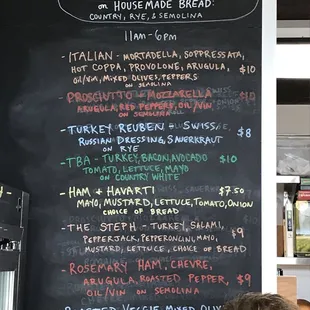 on HOUSEMADE BREAD:
COUNTRY, RYE, & SEMOLINA
11AM-6PM
- ITALIAN - MORTADELLA, SOPPRESSATA,
HOT COPPA, PROVOLONE, ARUGULA, $10
OIL/VIN, MIXED OLIVES, PEPPERS
ON SEMOLINA
- PROSCIUTTO - MOZZARELLA $10
ARUGULA, RED PEPPERS, OIL/VIN
ON SEMOLINA
- TURKEY REUBEN - SWISS, $8
RUSSIAN DRESSING, SAUERKRAUT
ON RYE
- TBA - TURKEY, BACON, AVOCADO $10
TOMATO, LETTUCE, MAYO
ON COUNTRY WHITE
- HAM + HAVARTI $7.50
MAYO, MUSTARD, LETTUCE, TOMATO, ONION
CHOICE OF BREAD
- THE STEPH - TURKEY, SALAMI, $9
PEPPERJACK, PEPPERONCINI, MAYO,
MUSTARD, LETTUCE, CHOICE OF BREAD
- ROSEMARY HAM, CHEVRE, $9
ARUGULA, ROASTED PEPPER,
OIL/VIN ON SEMOLINA
VEGGIE MIXED OLIVE